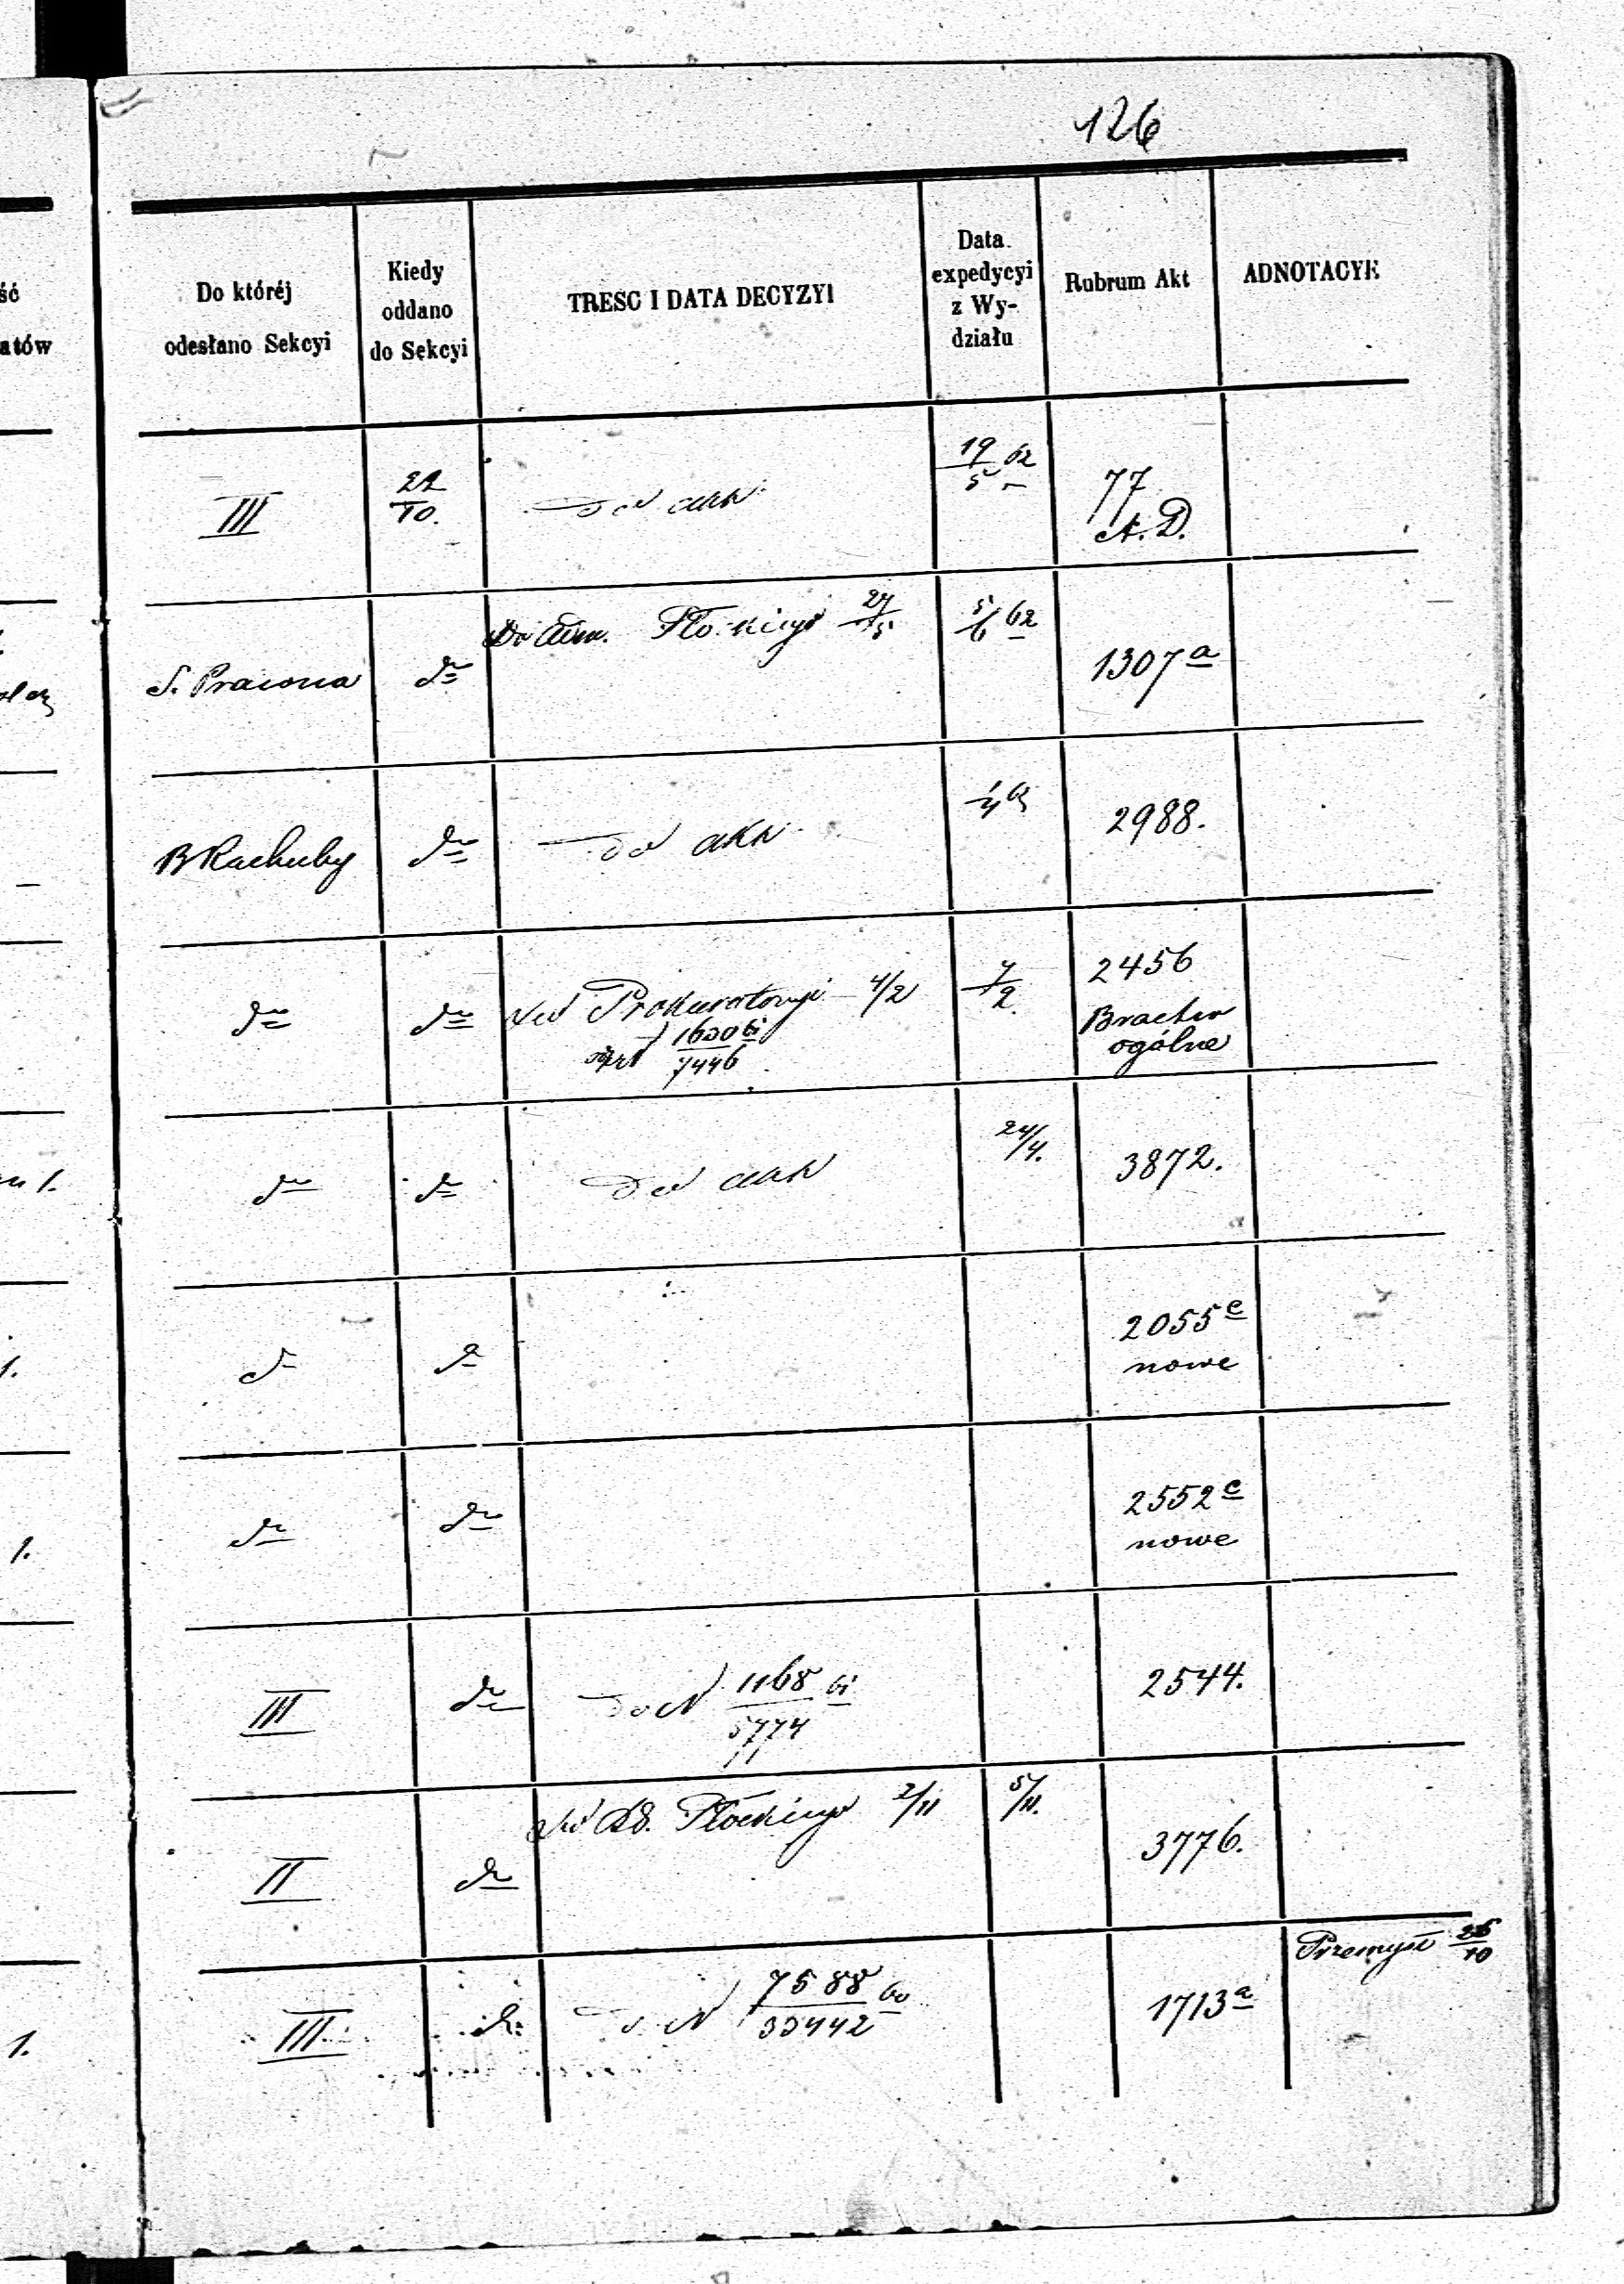 126
Do któréj
odesłano Sekcyi
Kiedy
oddano
do Sekcyi
TREŚC I DATA DECYZYI
Data
expedycyi
z Wy-
działu
Rubrum Akt
ADNOTACYE
ść
atów
III
22/10.
Do akt
19/5 62
77
A. D.
S. Prawna
dto
Płockiego 27/5
5/6 62
1307 a
B Rachuby
dto
Do akt
2988.
dto
dto
Do Prokuratoryi 4/2
1630 61/7446
7/2.
2456
Bractw
ogólne
dto
dto
Do akt
24/4.
3872.
dto
dto
2055 c
nowe
dto
dto
2552 c
nowe
III
dto
Do N 1168/5774 61
2544.
II
dto
Płockiego 2/11
5/11.
3776.
III
dto
Do N 7588/33442 60
1713 a
Przemysł 26/10
1.